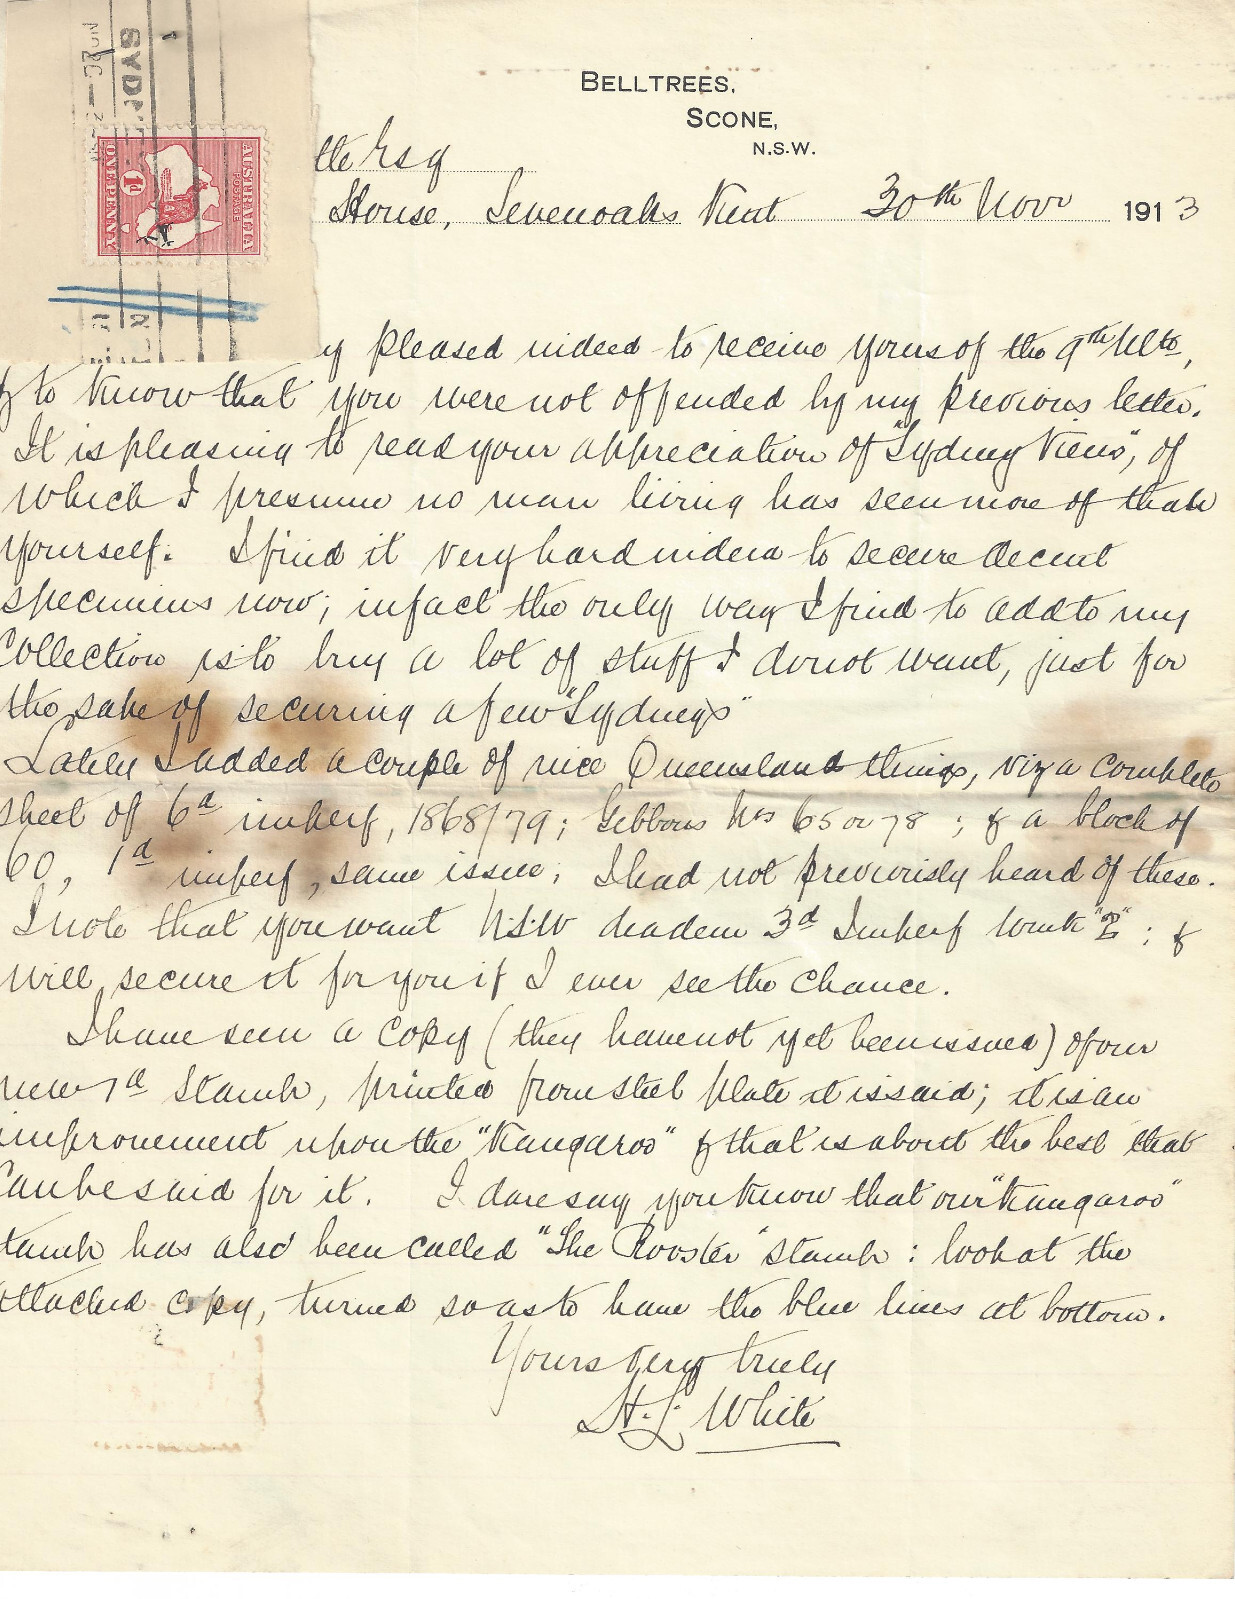 BELLTREES,
SCONE,
N.S.W.
Esq
House, Sevenoaks Kent 30th Novr 1913
SYD
AUSTRALIA
POSTAGE
1d
ONE PENNY
y pleased indeed to receive yours of the 9th Ulto,
& to know that you were not offended by my previous letter.
It is pleasing to read your appreciation of "Sydney Views", of
which I presume no man living has seen more of than
yourself. I find it very hard indeed to secure decent
specimens now; in fact the only way I find to add to my
Collection is to buy a lot of stuff I do not want, just for
the sake of securing a few "Sydneys"
Lately I added a couple of nice Queensland things, viz a complete
sheet of 6d imperf, 1868/79; Gibbons Nos 65 or 78; & a block of
60, 1d imperf, same issue; I had not previously heard of these.
I note that you want N.S.W diadem 3d Imperf wmk "2"; &
will secure it for you if I ever see the chance.
I have seen a copy (they have not yet been issued) of our
new 1d Stamp, printed from steel plate it is said; it is an
improvement upon the "Kangaroo" & that is about the best that
can be said for it. I dare say you know that our "Kangaroo"
stamp has also been called "The Rooster" stamp: look at the
attached copy, turned so as to have the blue lines at bottom.
Yours very truly
H. L. White